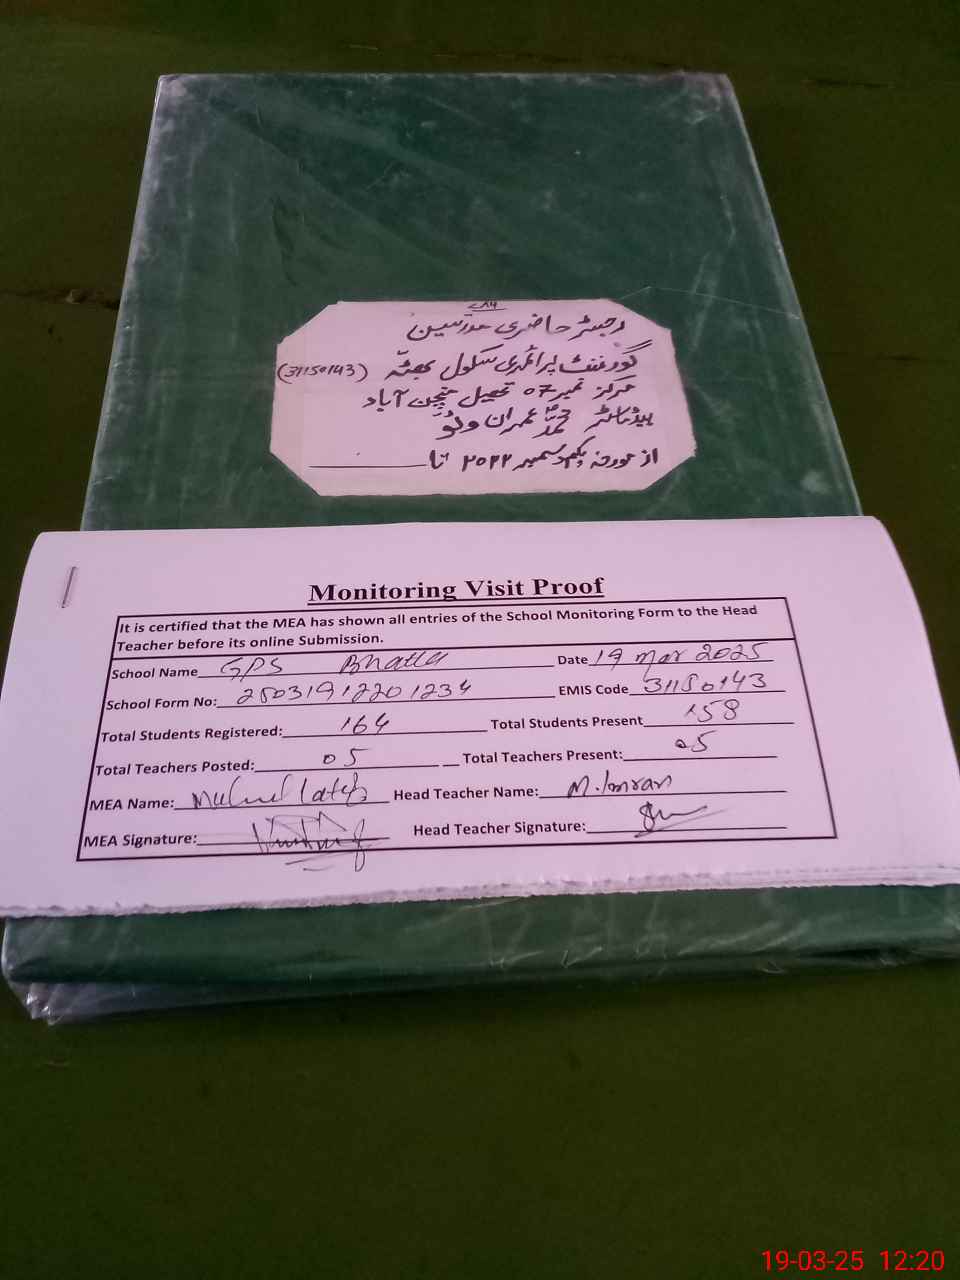 ۷۸۶
رجسٹر حاضری مدرسین
گورنمنٹ پرائمری سکول بھٹہ (31150143)
مرکز نمبر 07 تحصیل منچن آباد
ہیڈماسٹر محمد عمران وٹو
از مورخہ یکم دسمبر ۲۰۲۲ تا
Monitoring Visit Proof
It is certified that the MEA has shown all entries of the School Monitoring Form to the Head
Teacher before its online Submission.
School Name GPS Bhatta Date 19 Mar 2025
School Form No: 25031912201234 EMIS Code 31150143
Total Students Registered: 164 Total Students Present 158
Total Teachers Posted: 05 Total Teachers Present: 05
MEA Name: Latif Head Teacher Name: M. Imran
MEA Signature: Head Teacher Signature:
19-03-25 12:20